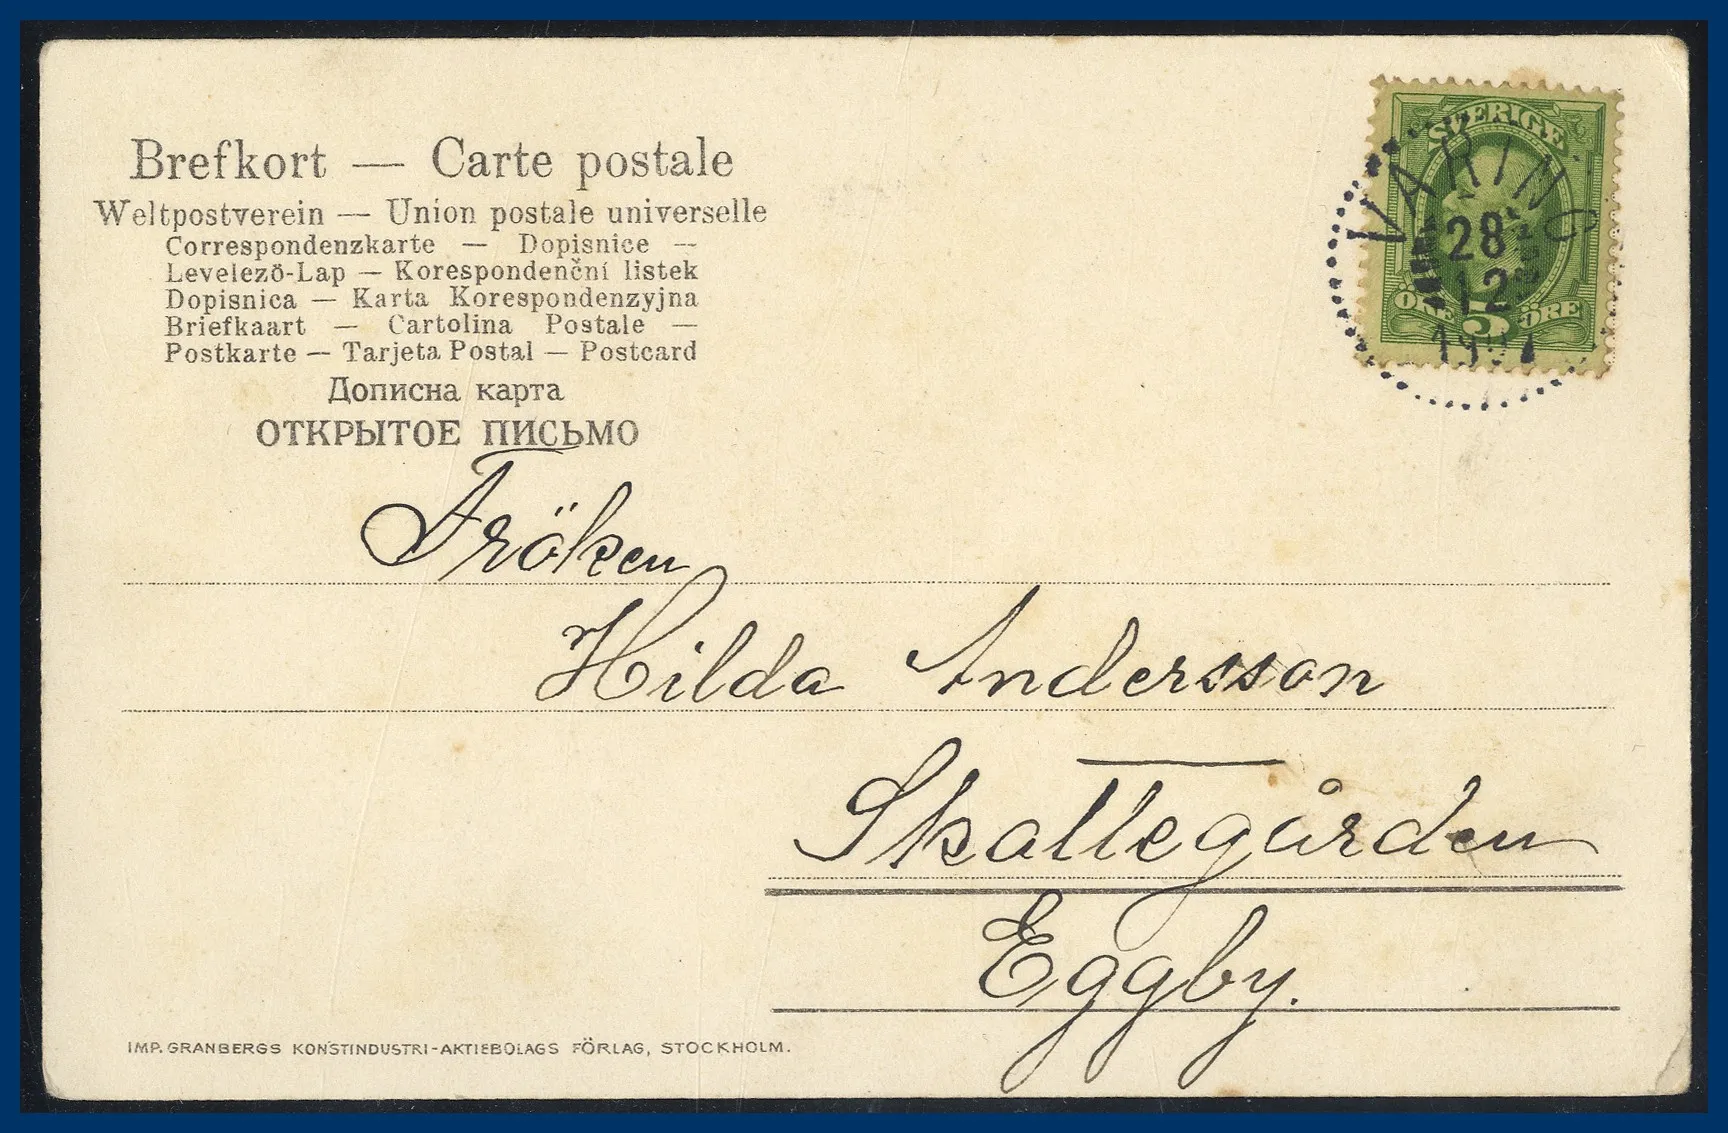 Brefkort — Carte postale
Weltpostverein — Union postale universelle
Correspondenzkarte — Dopisnice —
Levelező-Lap — Korespondenční listek
Dopisnica — Karta Korespondenzyjna
Briefkaart — Cartolina Postale —
Postkarte — Tarjeta Postal — Postcard
Дописна карта
ОТКРЫТОЕ ПИСЬМО
SVERIGE
VÄRING
28
12
ÖRE 5 ÖRE
Fröken
Hilda Andersson
Skattegården
Eggby.
IMP. GRANBERGS KONSTINDUSTRI-AKTIEBOLAGS FÖRLAG, STOCKHOLM.